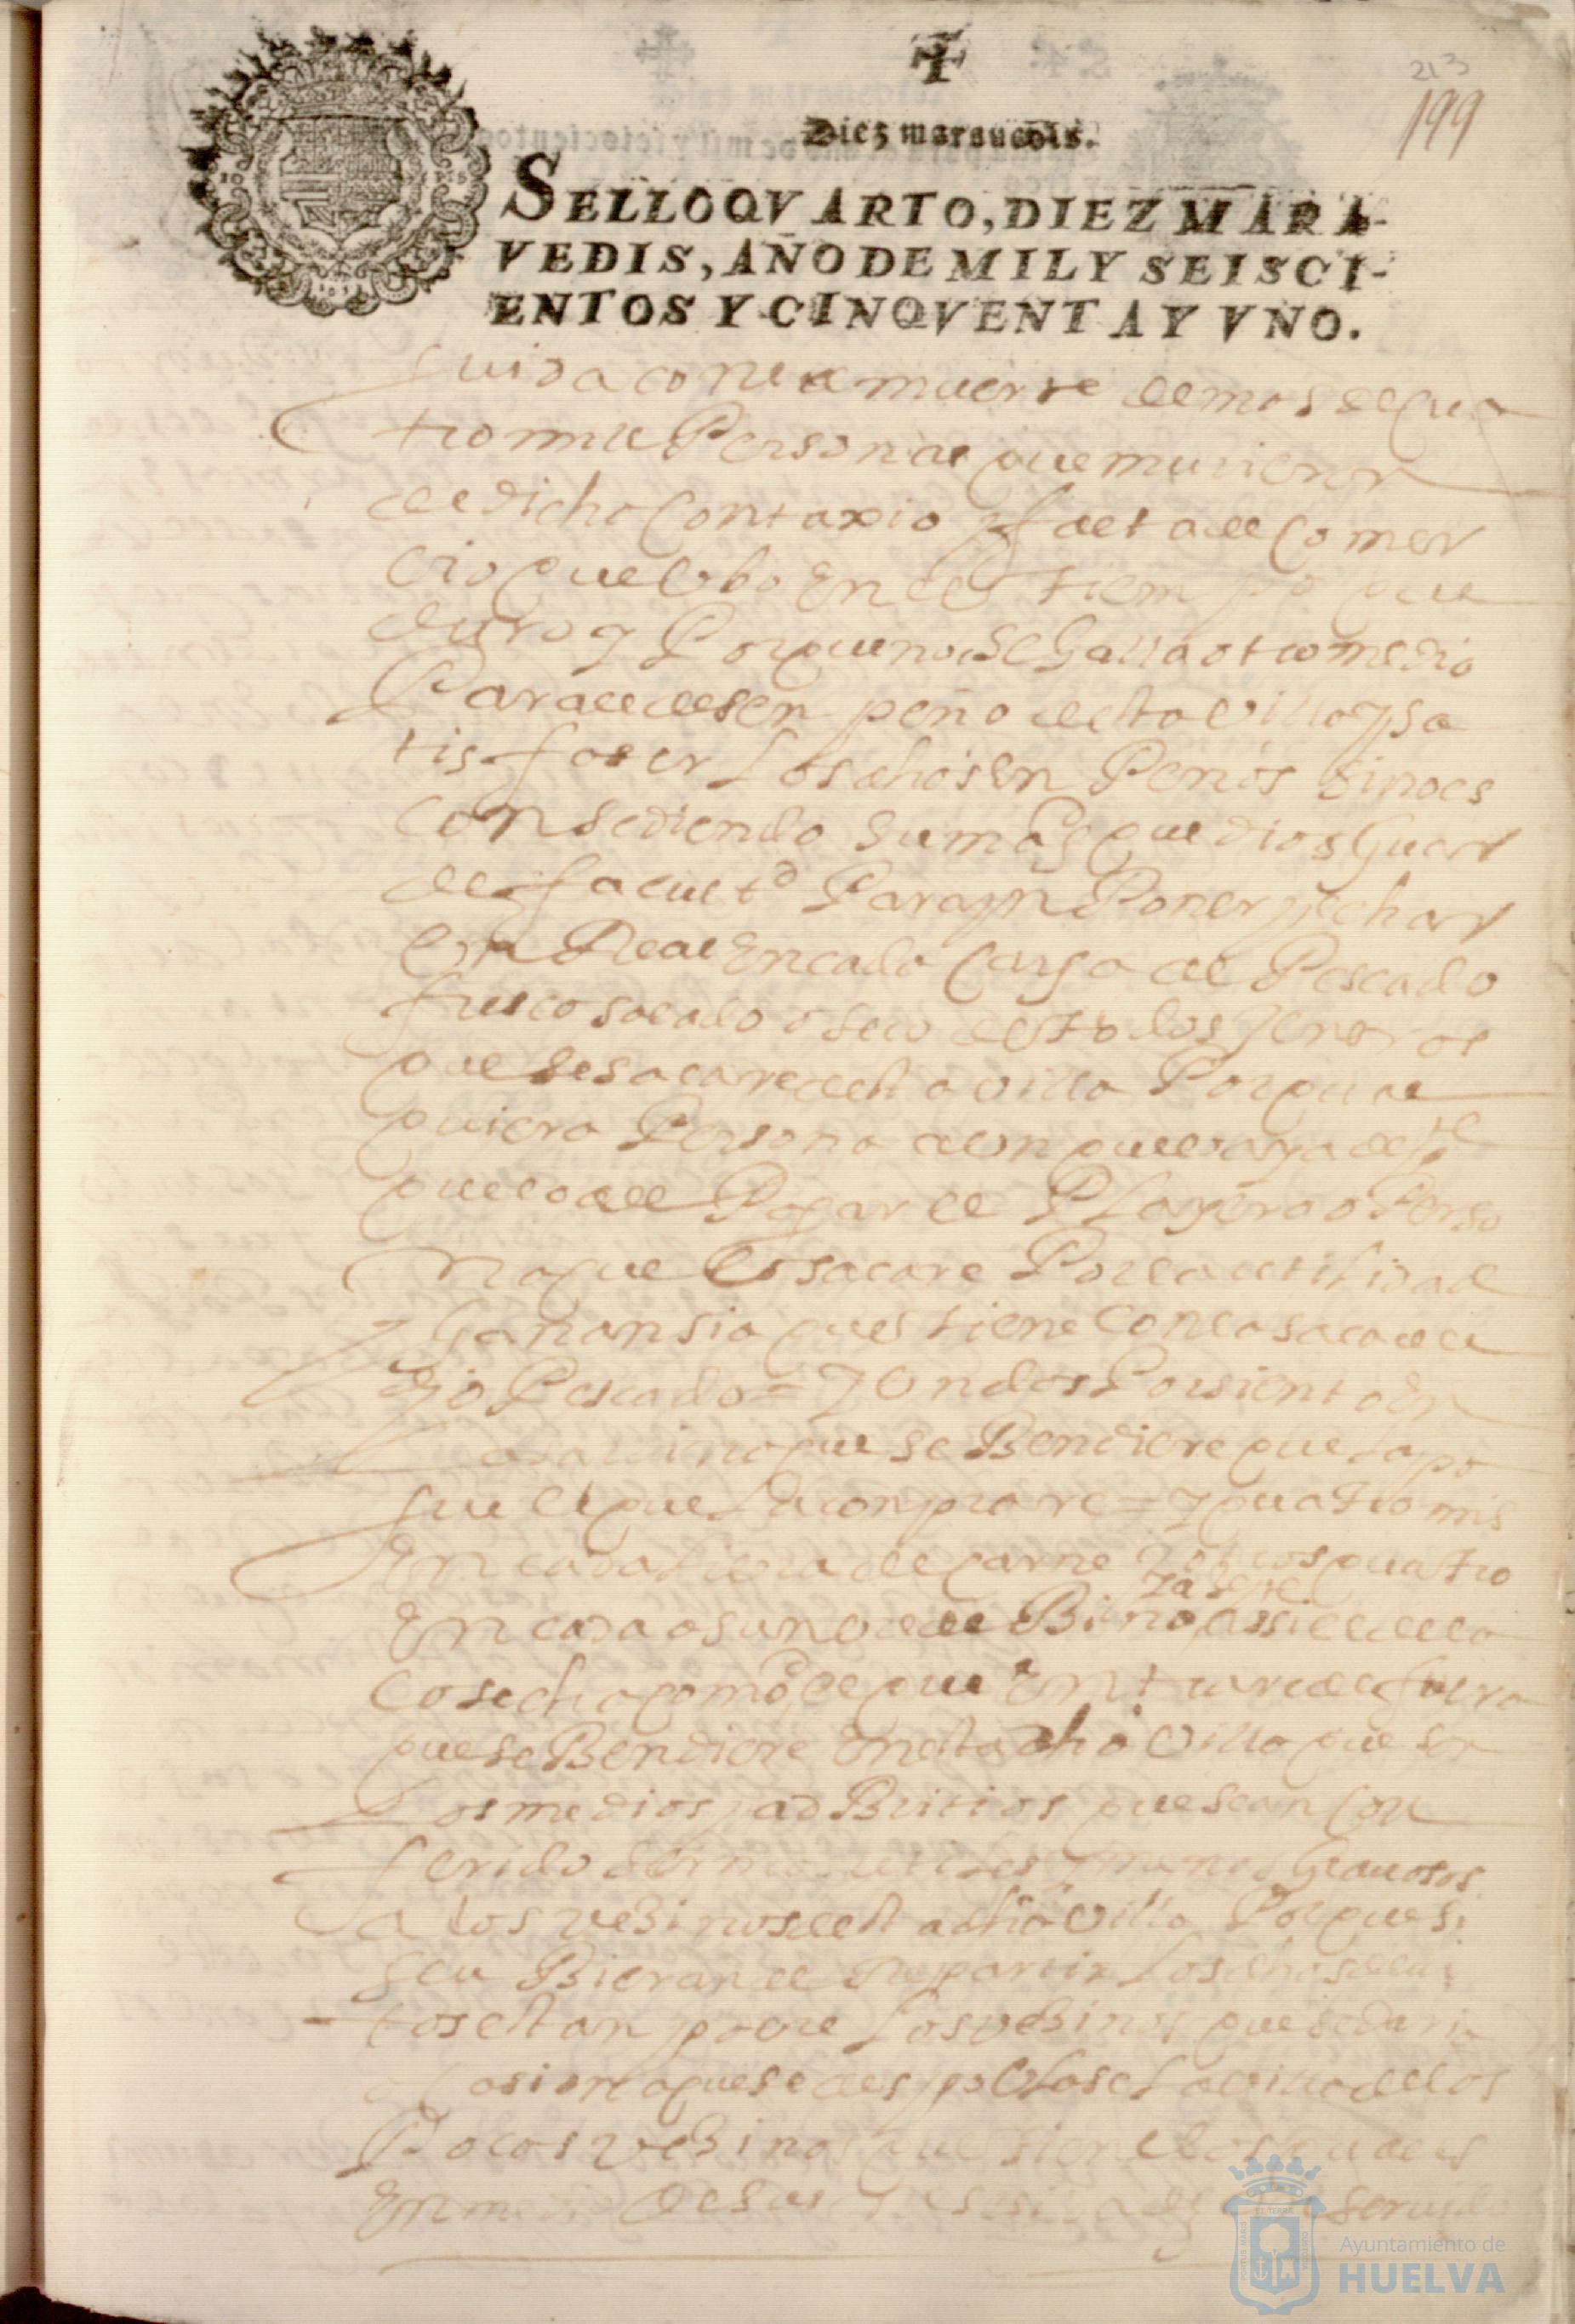 213
199
Diez marauedis.
SELLO QVARTO, DIEZ MARA-
VEDIS, AÑO DE MIL Y SEISCI-
ENTOS Y CINQVENTA Y VNO.
con la muerte de mas de qua
tro mill Personas que murieron
de dicho Contaxio y falta de Comer
cio que Vbo En el tiempo que
duro y Porque no se Halla otro medio
Para el desenpeño desta Villa y sa
tisfaser Los dhos en Penos sino es
Consediendo su magd que dios Guar
de facultd Para ynPoner y echar
Vn Real En cada Carga de Pescado
fresco salado o seco de todos Generos
que se sacare desta villa Por qual
quiera Persona aun que
que lo a de Pagar el Playero o Perso
na que Lo sacare Por la utilidad
y Ganansia que tiene Con la saca del
dho Pescado = y Un dos Por siento En
que se Bendiere que La pa
gue el que La conprare = y quatro mrs
En cada Libra de carne y otros quatro
y aseite
En cada asunbre de Bino assi de la
Cosecha como de que Entrare de fuera
que se Bendiere En esta dha Villa que son
Los medios y adBitrios que sean Con
ferido Ser mas utiles y menos Grauosos
a los vesinos desta dha Villa Porque si
se uBieran de Repartir Los dhos debi
tos estan pobres Los vesinos que se daria
ocasion a que se despoblase La villa de los
Pocos vesinos que tiene Los quales
En me de sus
Ayuntamiento de
HUELVA